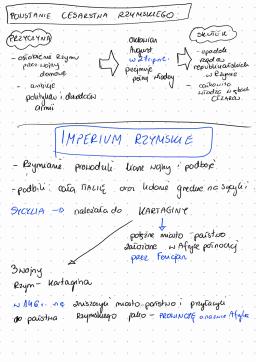 POWSTANIE CESARSTWA RZYMSKIEGO
PRZYCZYNA
- osłabienie Rzymu
przez wojny
domowe
- ambicje
polityków i dowódców
armii
Oktawian
August
w 27 r. p.n.e.
przejmuje
pełnię władzy
SKUTEK
- upadek
rządów
republikańskich
w Rzymie
- całkowita
władza w rękach
CEZARA
IMPERIUM RZYMSKIE
- Rzymianie prowadzili liczne wojny i podboje
- podbili całą ITALIĘ oraz kolonie greckie na Sycylii
SYCYLIA → należała do KARTAGINY
potężne miasto - państwo
założone w Afryce północnej
przez Fenicjan
3 wojny
Rzym - Kartagina
w 146 r. p.n.e. zniszczyli miasto państwo i przyłączyli
do państwa rzymskiego jako - PROWINCJĘ o nazwie Afryka